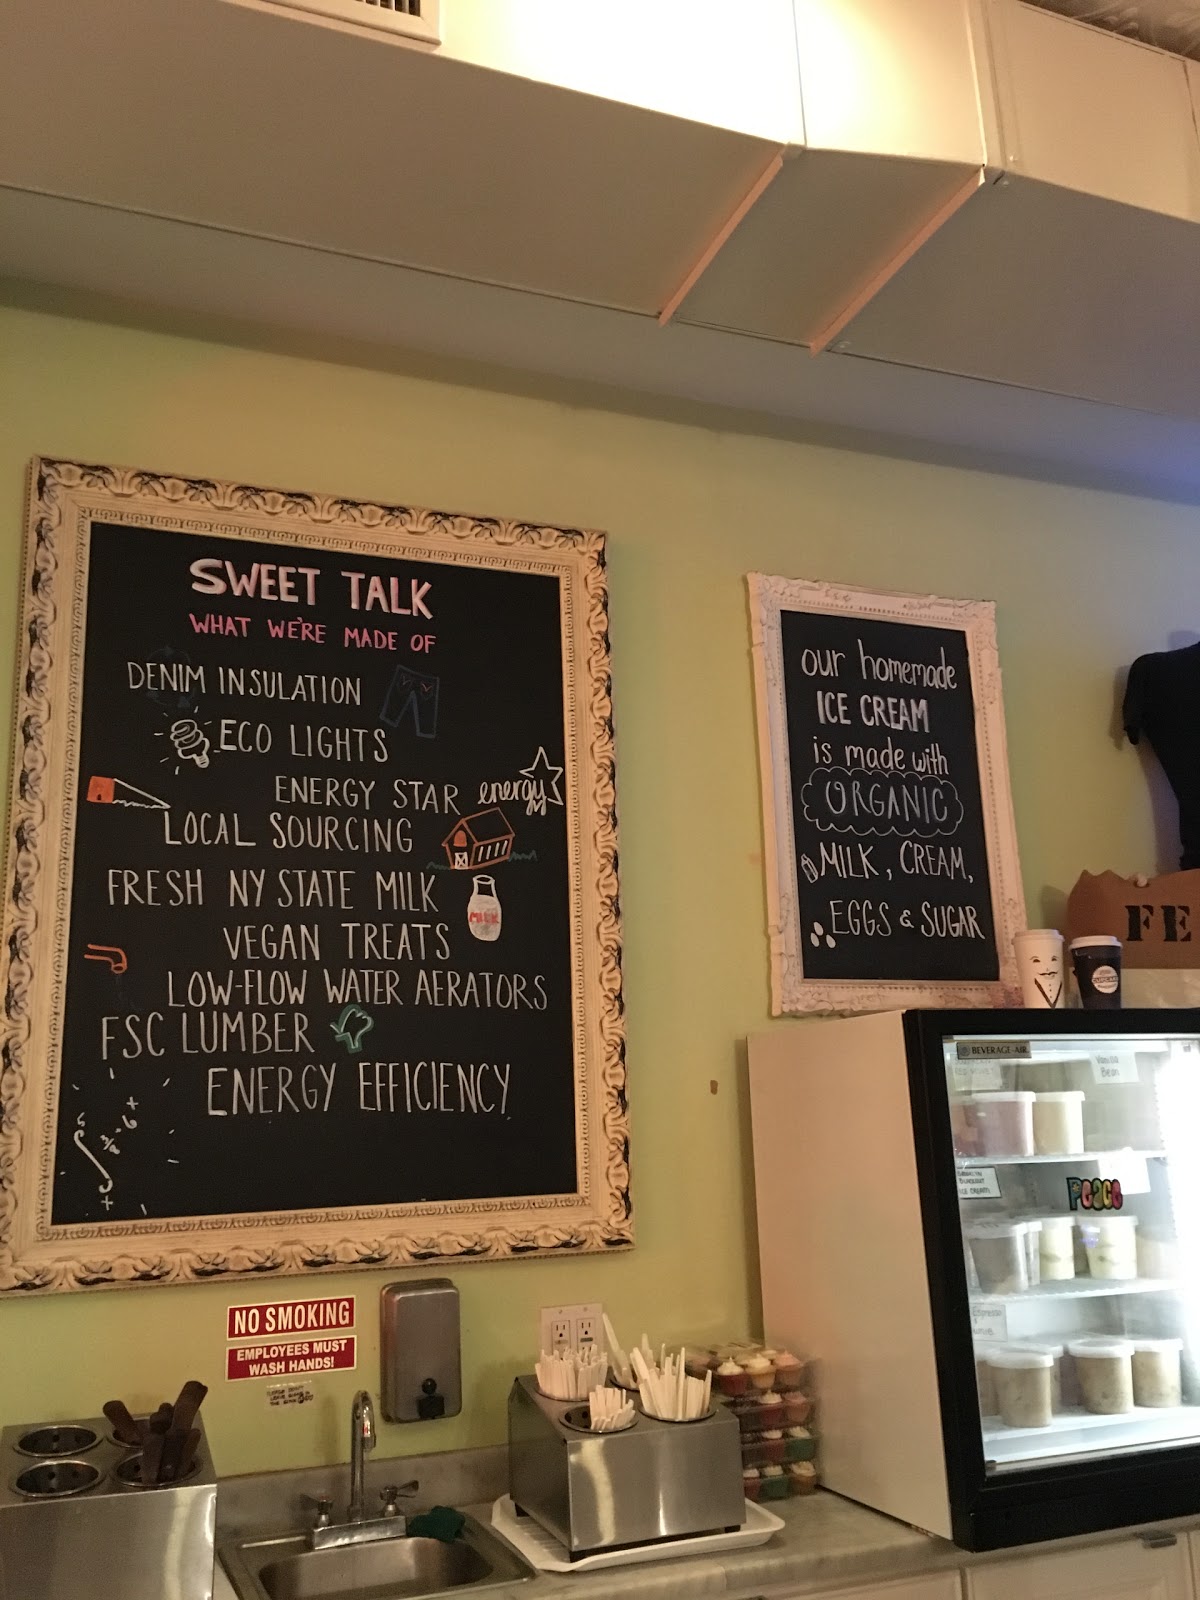 SWEET TALK
WHAT WE'RE MADE OF
DENIM INSULATION
ECO LIGHTS
ENERGY STAR energy
LOCAL SOURCING
FRESH NY STATE MILK
MILK
VEGAN TREATS
LOW-FLOW WATER AERATORS
FSC LUMBER
ENERGY EFFICIENCY
our homemade
ICE CREAM
is made with
ORGANIC
MILK, CREAM,
EGGS & SUGAR
FE
BEVERAGE-AIR
Vanilla
Bean
ICE CREAM
Peace
Espresso
NO SMOKING
EMPLOYEES MUST
WASH HANDS!